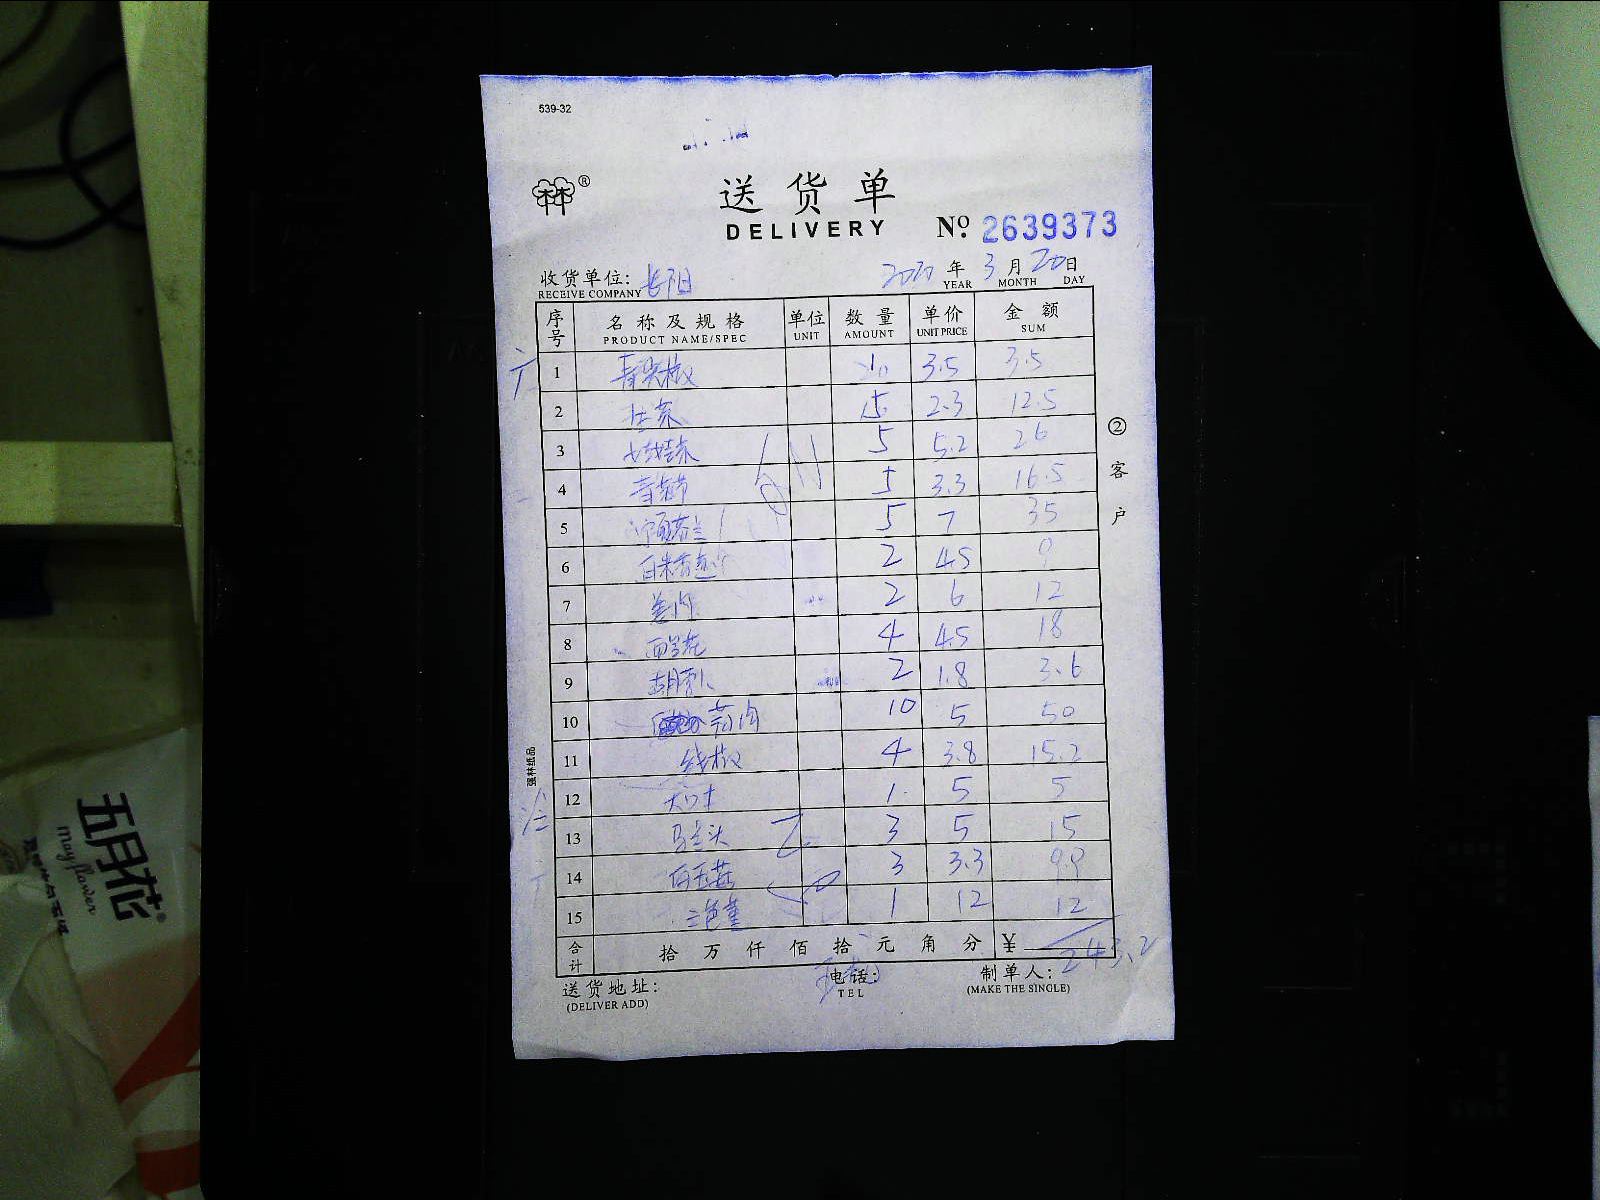 539-32
林®
送货单
DELIVERY № 2639373
收货单位: 长阳 2020 年 3 月 20 日
RECEIVE COMPANY YEAR MONTH DAY
序号 名称及规格 单位 数量 单价 金额
PRODUCT NAME/SPEC UNIT AMOUNT UNIT PRICE SUM
1 青尖椒 3.5 3.5
2 2.3 12.5
3 5 5.2 26
4 5 3.3 16.5
5 5 7 35
6 2 4.5 9
7 姜肉 2 6 12
8 西兰花 4 4.5 18
9 胡萝卜 2 1.8 3.6
10 蒜肉 10 5 50
11 线椒 4 3.8 15.2
12 1 5 5
13 马兰头 3 5 15
14 白玉菇 3 3.3 9.9
15 三色堇 1 12 12
合计 拾 万 仟 佰 拾 元 角 分 ¥ 243.2
送货地址: 电话: 制单人:
(DELIVER ADD) TEL (MAKE THE SINGLE)
② 客户
强林纸品
五月花®
Mayflower